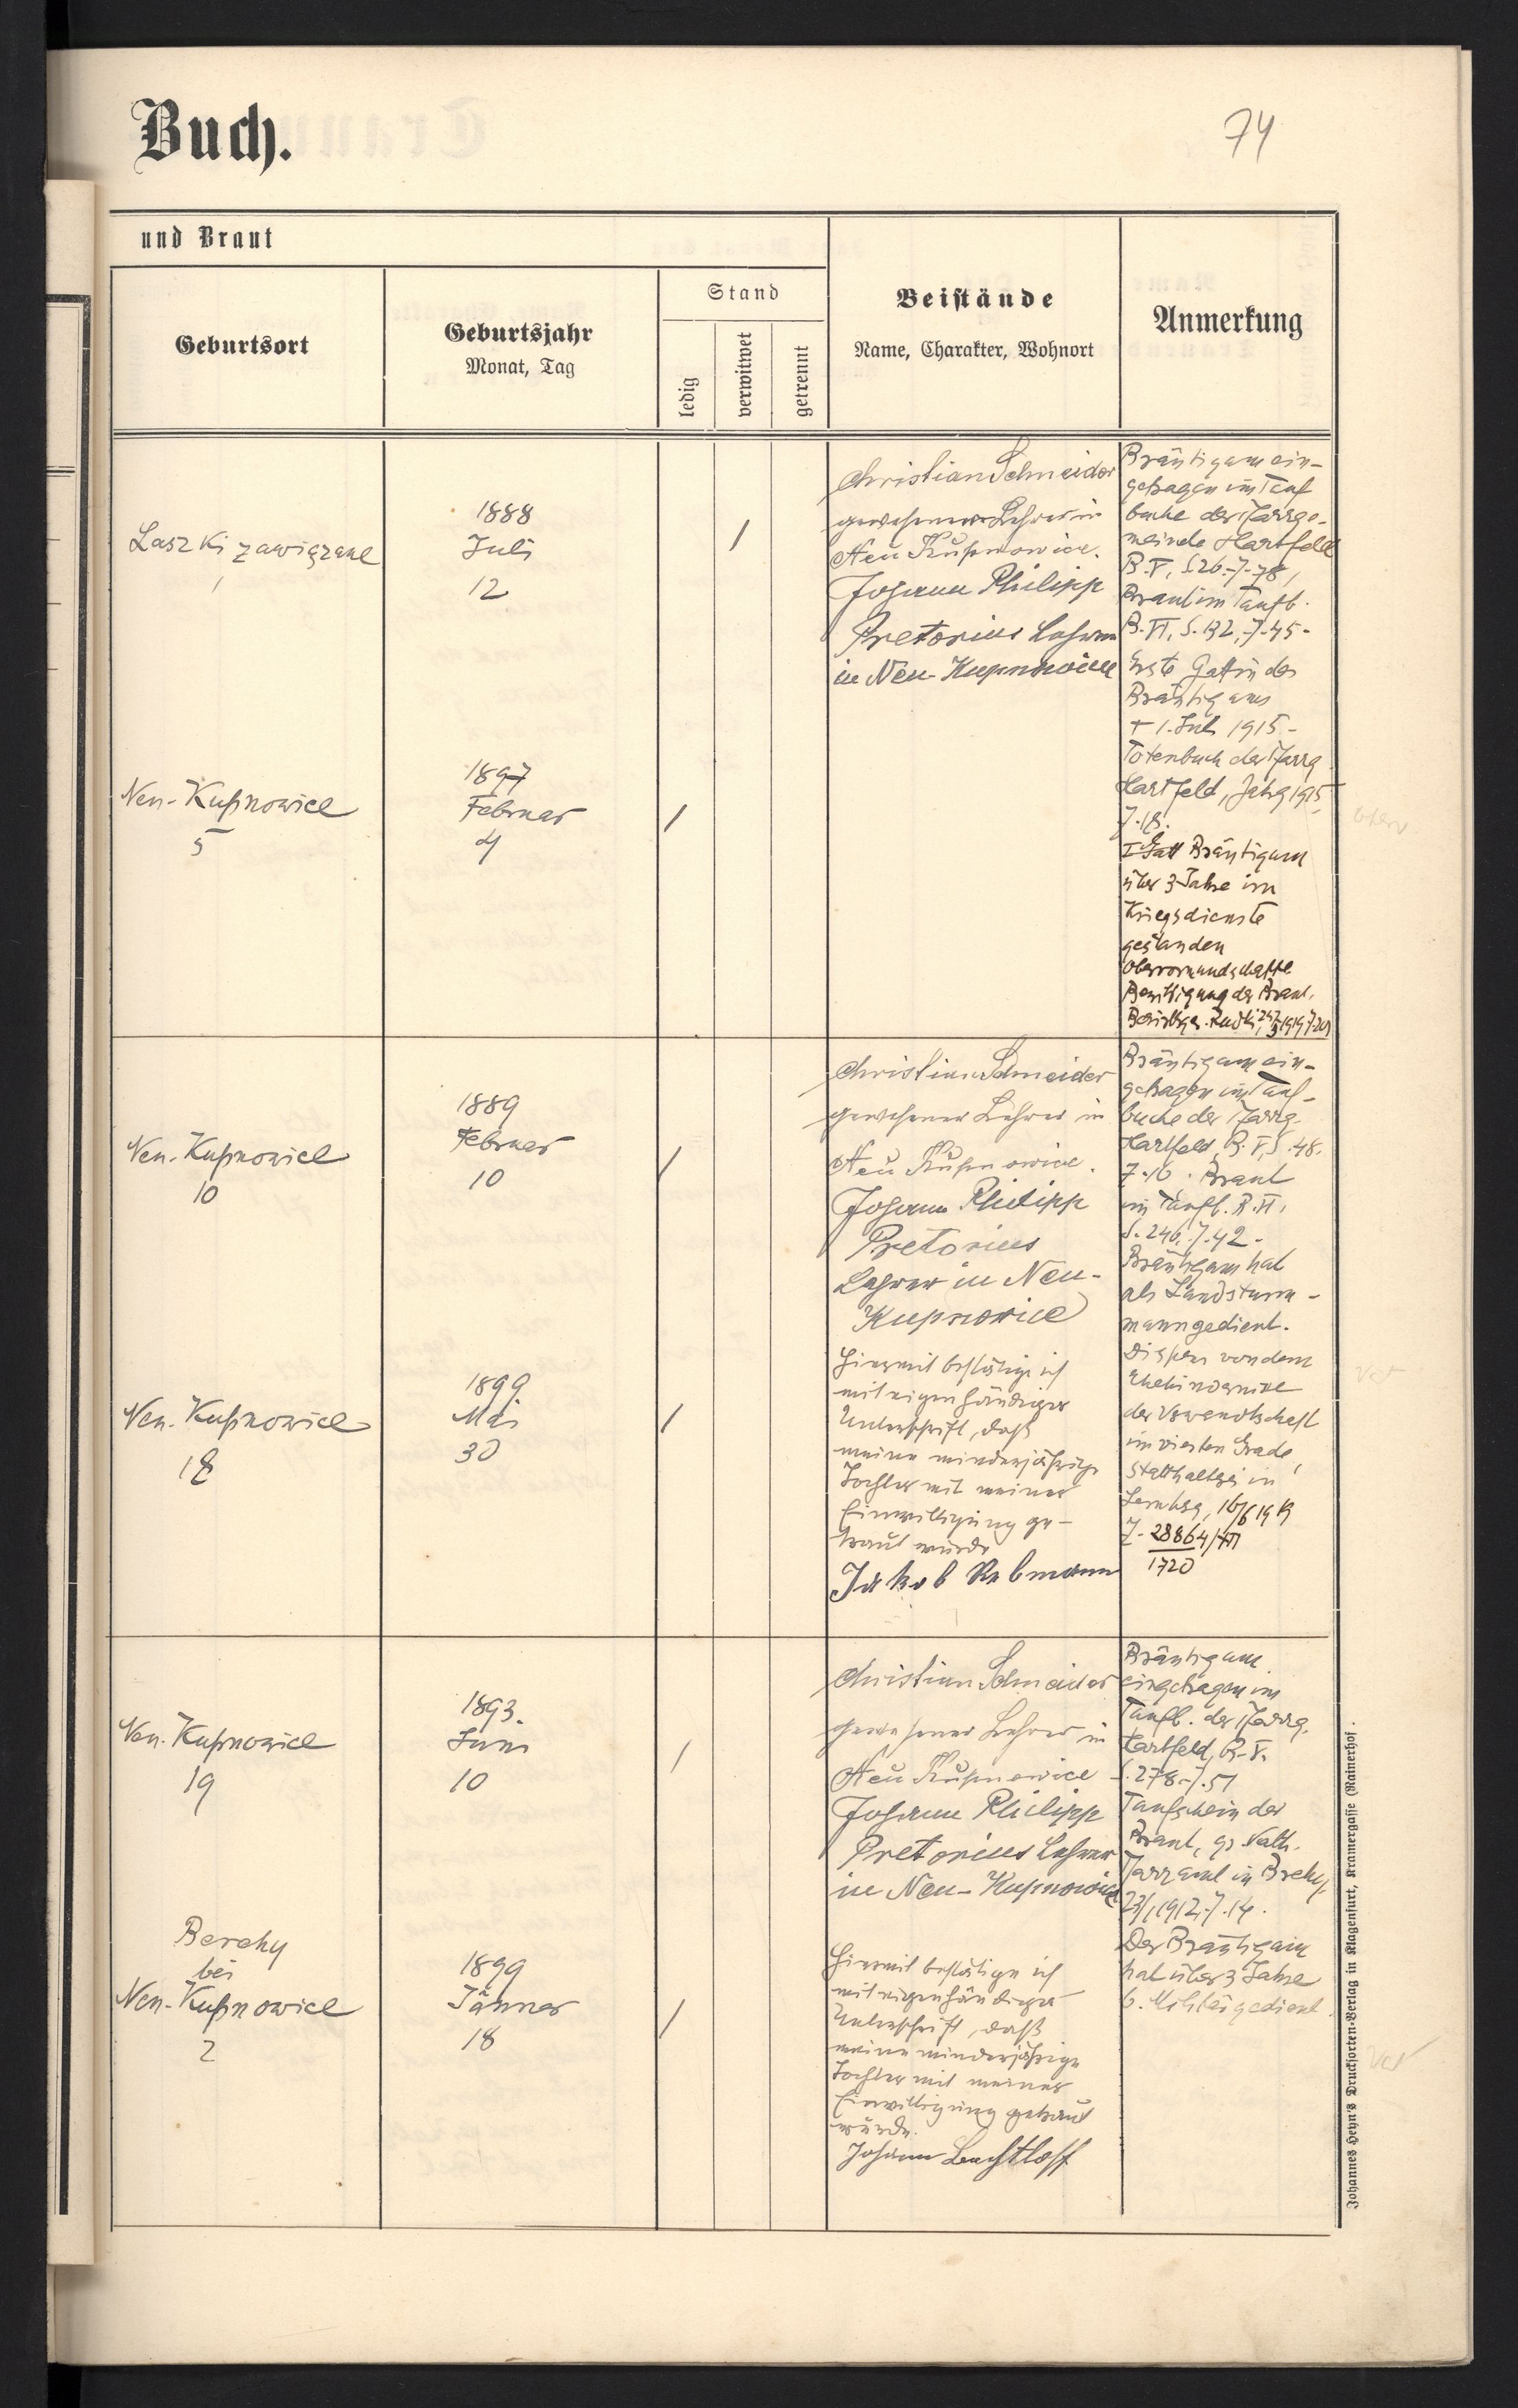 Buch.
74
und Braut
Geburtsort
Geburtsjahr
Monat, Tag
Stand
ledig
verwitwet
getrennt
Beistände
Name, Charakter, Wohnort
Anmerkung
Laszki zawiązane
1888
Juli
12
/
Neu-Kupnowice
5
1897
Februar
4
/
Christian Schneider
gewesener Lehrer in
Neu Kupnowice.
Johann Philipp
Pretorius Lehrer
in Neu-Kupnowice
Bräutigam ein-
getragen im Tauf
buche der Pfarrge-
meinde Hartfeld
B. V, S. 26.-Z-78,
Braut im Taufb.
B. VI, S. 132, Z-45-
Erste Gattin des
Bräutigams
+ 1. Juli 1915-
Totenbuch der Pfarrg
Hartfeld, Jahrg 1915
Z. 18.
Bräutigam
über 3 Jahre im
Kriegsdienste
gestanden
Obervormundschaftl
Bewilligung der Braut,
Bezirksger. Rudki
Neu-Kupnowice
10
1889
Februar
10
/
Neu-Kupnowice
18
1899
Mai
30
/
Christian Schneider
gewesener Lehrer in
Neu Kupnowice.
Johann Philipp
Pretorius
Lehrer in Neu-
Kupnowice
Hiermit bestätige ich
mit eigenhändiger
Unterschrift, daß
meine minderjährige
Tochter mit meiner
Einwilligung ge-
traut wurde
Jakob Rebmann
Bräutigam ein-
getragen im Tauf-
buche der Pfarrg.
Hartfeld, B. V, S. 48.
Z. 16. Braut
im Taufb. B. VI,
S. 246, Z. 42-
Bräutigam hat
als Landsturm-
mann gedient.
Dispens von dem
Ehehindernisse
der Verwandtschaft
im vierten Grade,
Statthalterei in
Lemberg, 16/6 1919
Z- 28864/VII
1720
Neu-Kupnowice
19
1893.
Juni
10
/
Berehy
bei
Neu-Kupnowice
2
1899
Jänner
18
/
Christian Schneider
gewesener Lehrer in
Neu Kupnowice
Johann Philipp
Pretorius Lehrer
in Neu-Kupnowice
Hiermit bestätige ich
mit eigenhändiger
Unterschrift, daß
meine minderjährige
Tochter mit meiner
Einwilligung getraut
wurde.
Johann
Bräutigam
eingetragen im
Taufb. der Pfarrg.
Hartfeld, B. V.
S. 278-Z. 51
Taufschein der
Braut, gr. kath.
Pfarramt in Berehy,
1912, Z. 14.
Der Bräutigam
hat über 3 Jahre
b. Militär gedient.
Johannes Heyn's Drucksorten-Verlag in Klagenfurt, Kramergasse (Rainerhof).